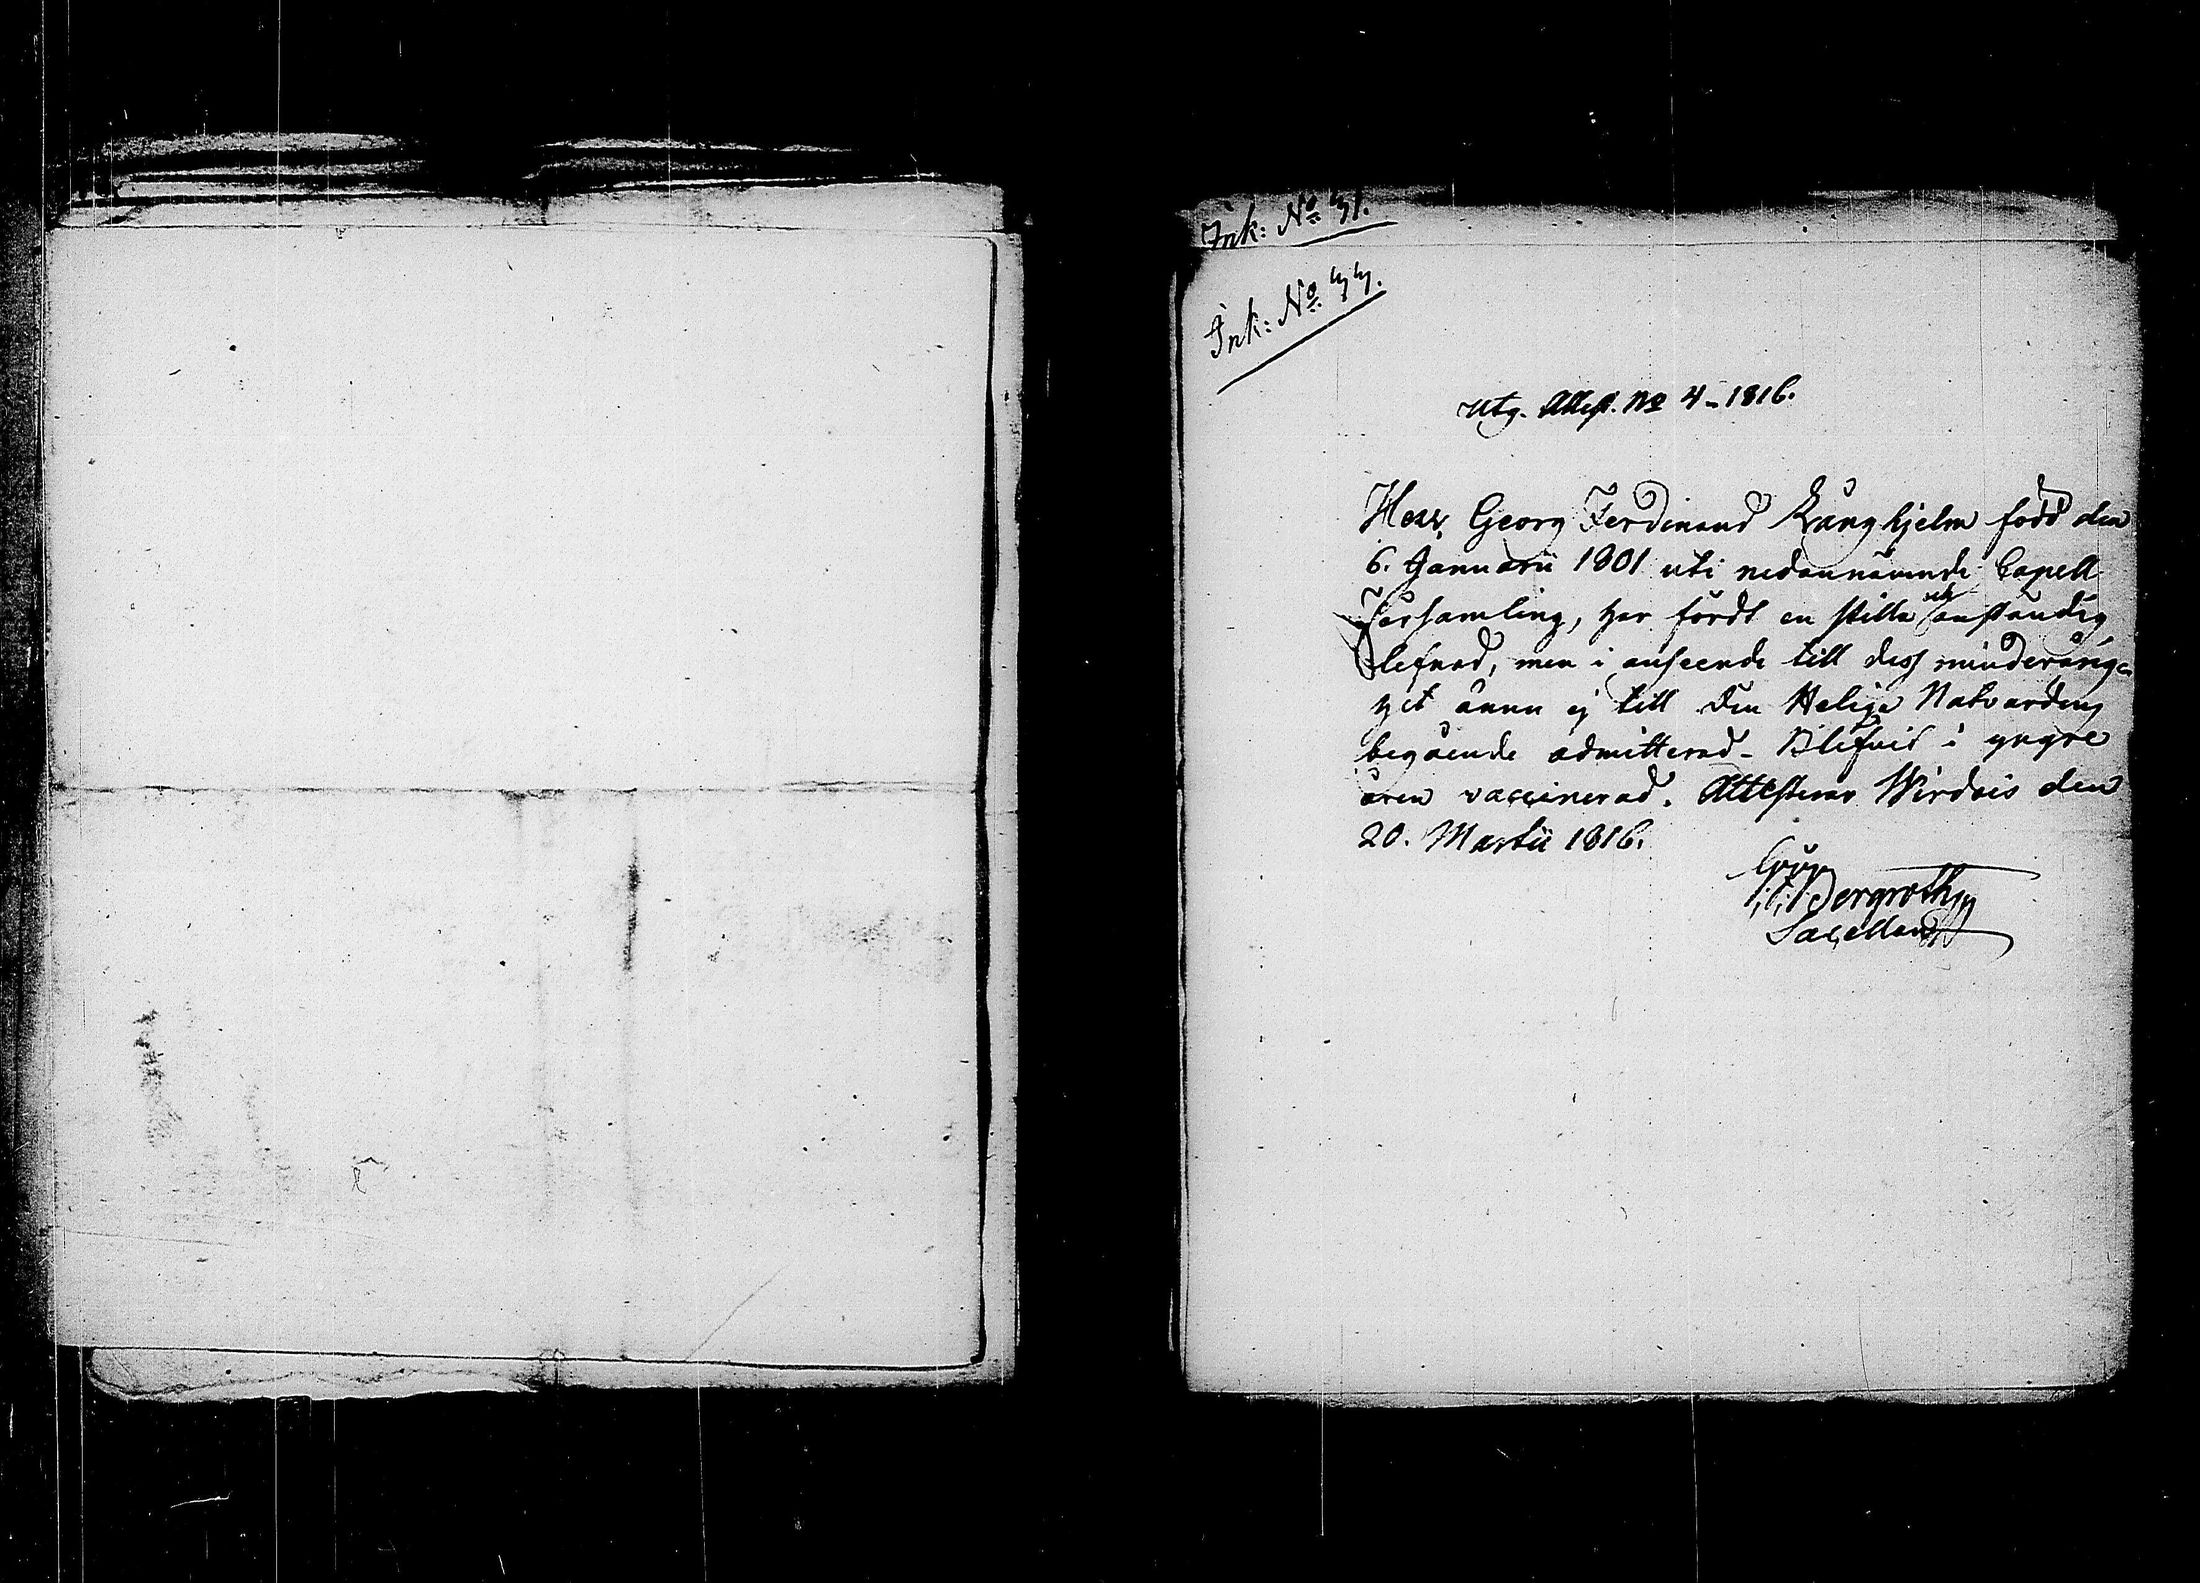 Ink: No 41.
Ink: No 44.
Utg. Attest. No 4-1816.
Herr Georg Ferdinand Rånghjelm född den
6. Januarii 1801 uti nedannämnde Capell
Församling, har fördt en stilla och anständig
lefnad, men i anseende till dess minderårig-
het ännu ej till den Heliga Nattvardens
begående admitterad. Blifvit i yngre
åren vaccinerad. Attesterar Wirdois den
20. Martii 1816.
Bergroth
Sacellan